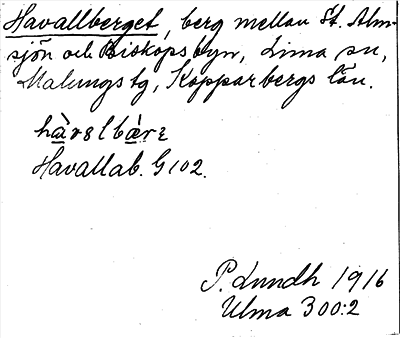 Havallberget, berg mellan St. Alm-
sjön och Biskopsbyn, Lima sn,
Malungs tg, Kopparbergs län.
hàvɛlbæ̀rɛ
Havallab. G 102.
P. Lundh 1916
Ulma 300:2